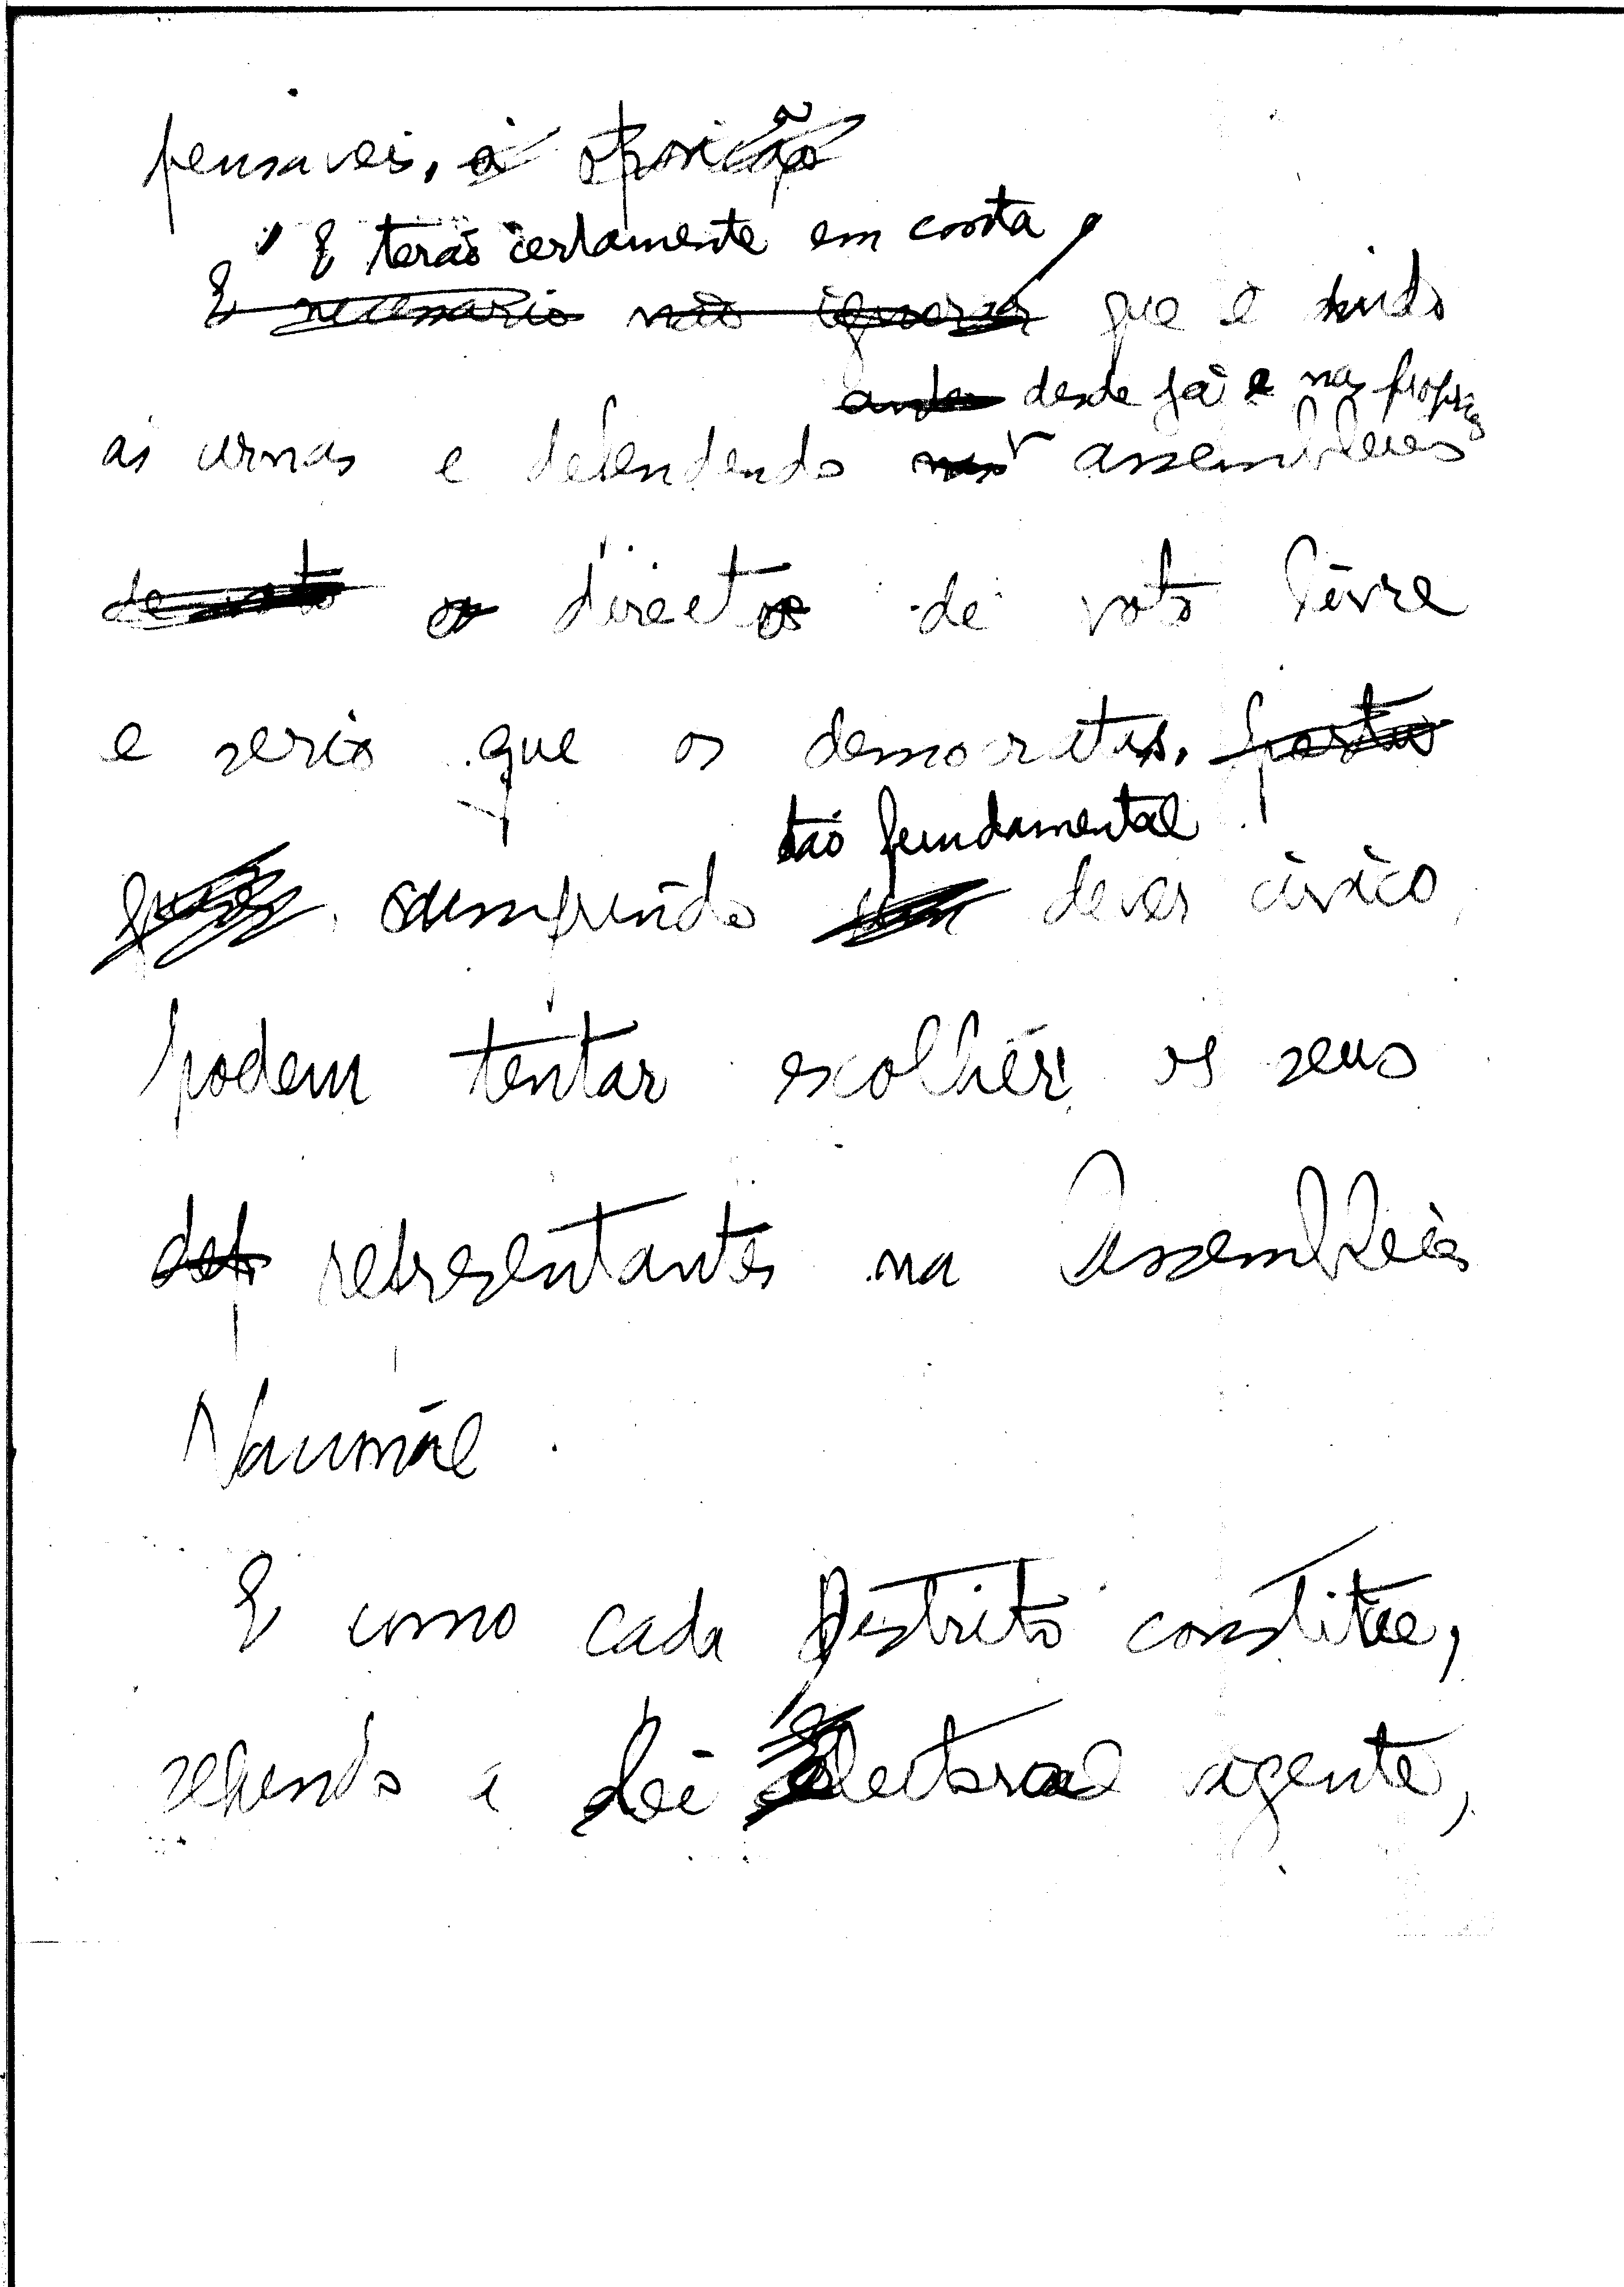 pensaveis, à oposição
E terão certamente em conta
E necessario não ignorar que é indo
desde já e nas proprias
ás urnas e defendendo nas assembleias
de voto o direito de voto livre
e serio que os democratas,
tão fundamental
cumprindo um dever civico,
podem tentar escolher os seus
representantes na Assembleia
Nacional.
E como cada Distrito constitue,
segundo a Lei Electoral vigente,